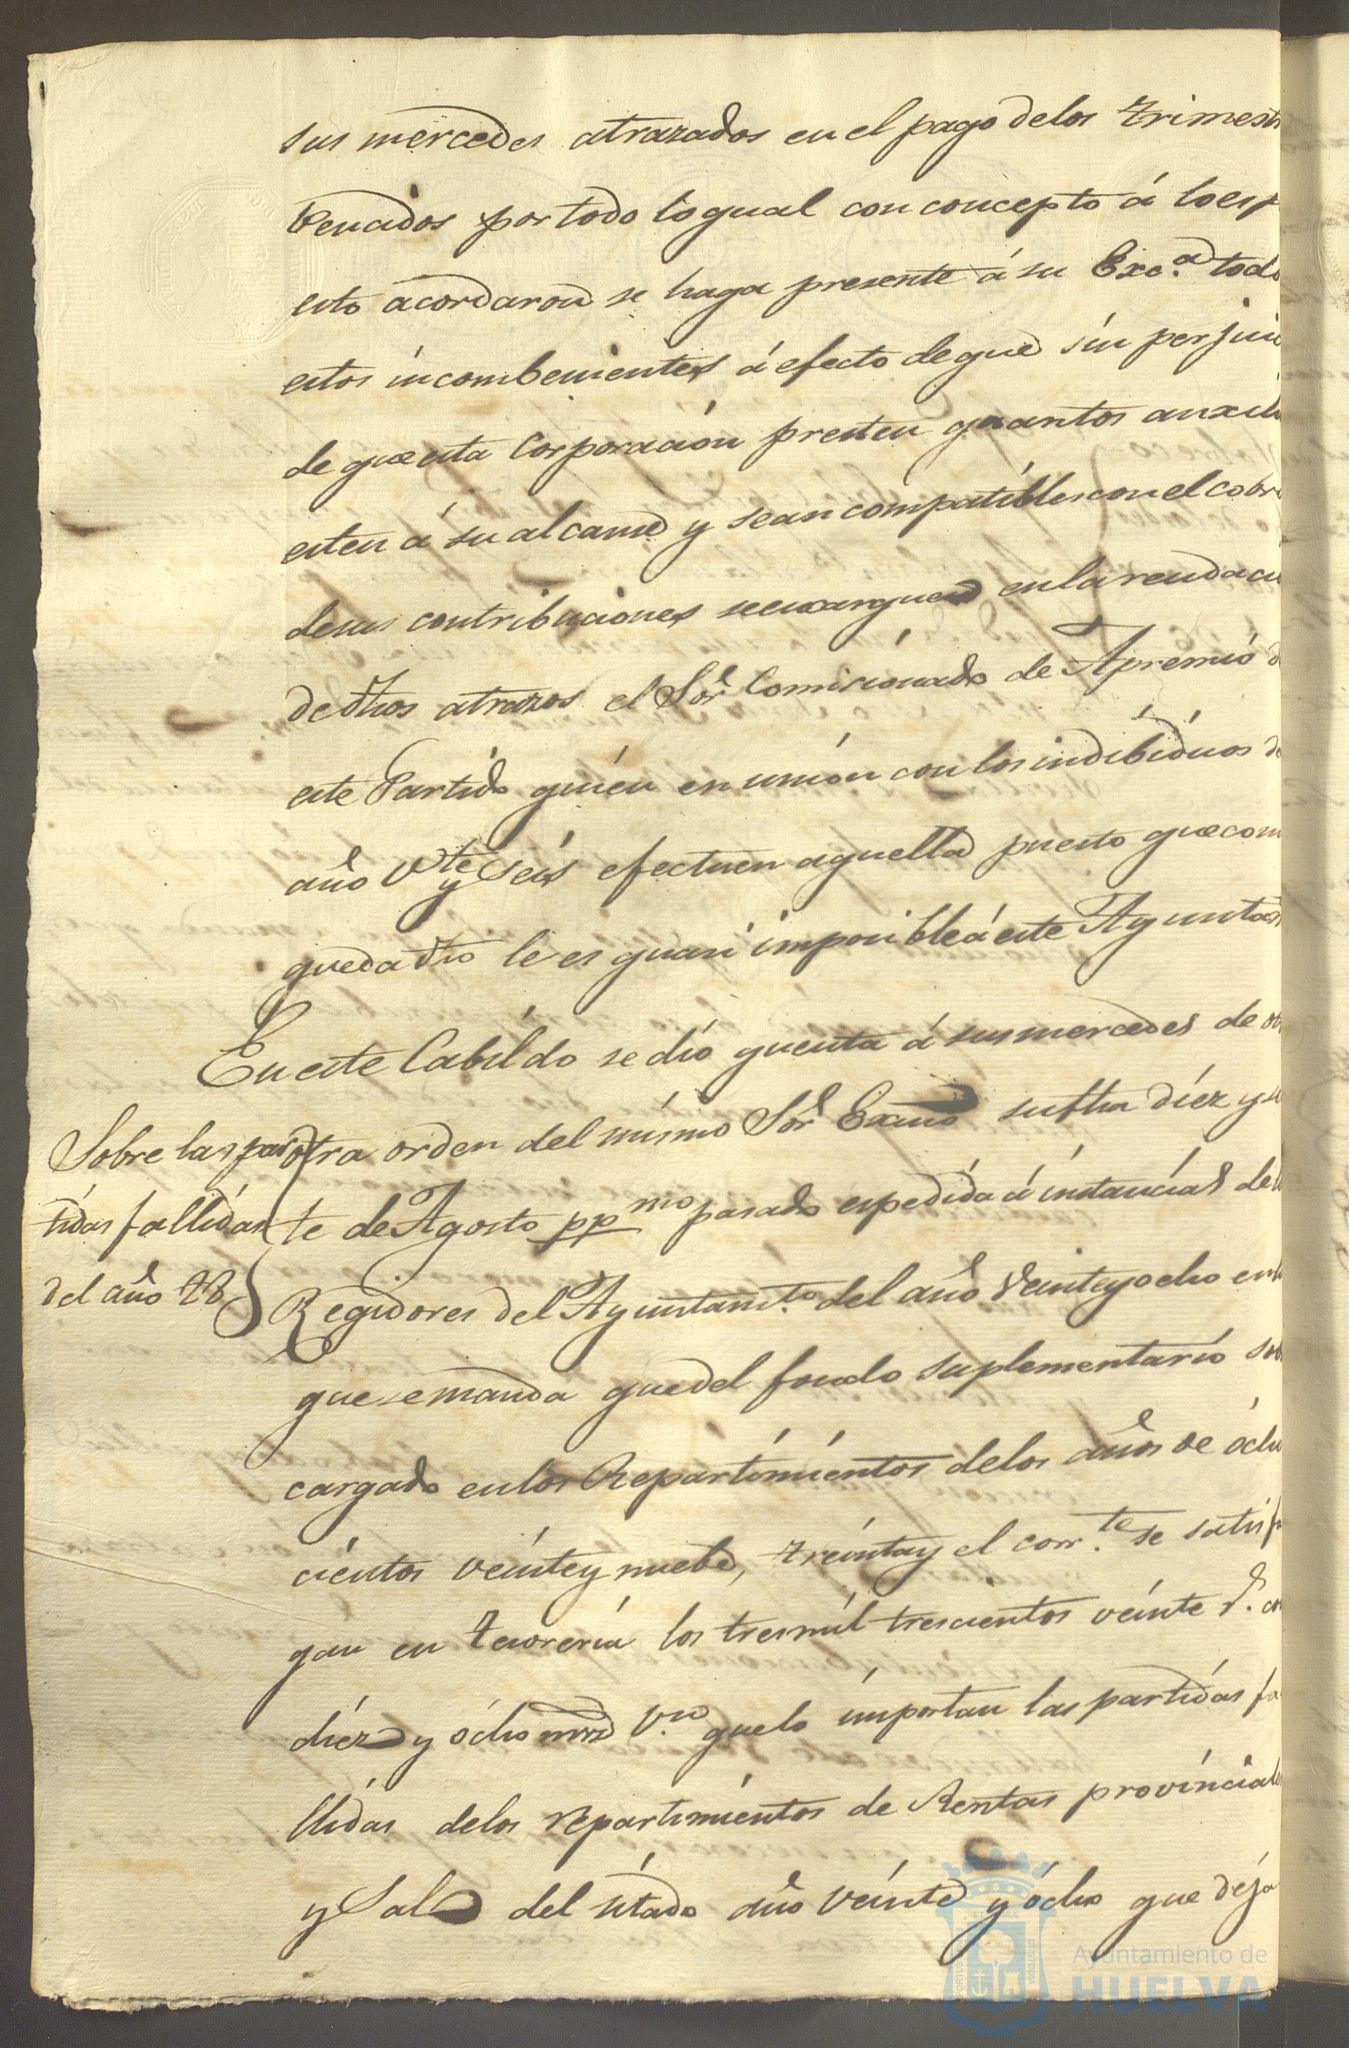 sus mercedes atrazados en el pago delos trimest
Vencidos por todo lo qual con concepto á lo esp
esto acordaron se haga presente á su Exc.a todo
estos incombenientes á efecto deque sin perjui
de que esta Corporación presten quantos auxili
esten á su alcance y sean compatibles con el cobr
desus contribuciones se encarguen en la rendaci
de dhos atrazos el Sor Comisionado de Apremio d
este Partido quien en unión con los indibiduos d
año Vte y Seis efectuen aquella puesto que com
queda dho le es quasi imposible á este Ayuntam
En este Cabildo se dió quenta á sus mercedes de
Sobre las par
tidas fallidas
del año 28
otra orden del mismo Sor Exmo su fha diez y si
te de Agosto pp.mo pasado espedida á instancias del
Regidores del Ayuntam.to del año Veinte y ocho en
que se manda que del fondo suplementario sob
cargado en los Repartimientos delos años de ócho
cientos veinte y nuebe, treinta y el corr.te se satisfa
gan en tesorería los tres mil trescientos veinte r.s con
diez y ócho mrs V.on que lo importan las partidas fa
llidas delos repartimientos de Rentas provinciale
y Sal del sitado año veinte y ócho que deja
Ayuntamiento de
HUELVA